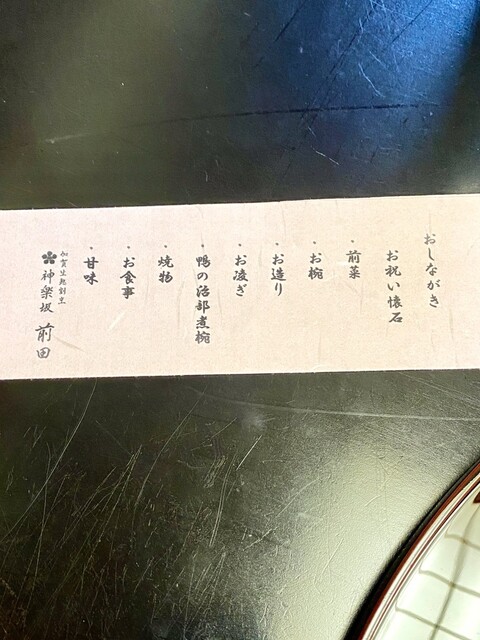 おしながき
お祝い懐石
・前菜
・お椀
・お造り
・お凌ぎ
・鴨の治部煮椀
・焼物
・お食事
・甘味
神楽坂 前田